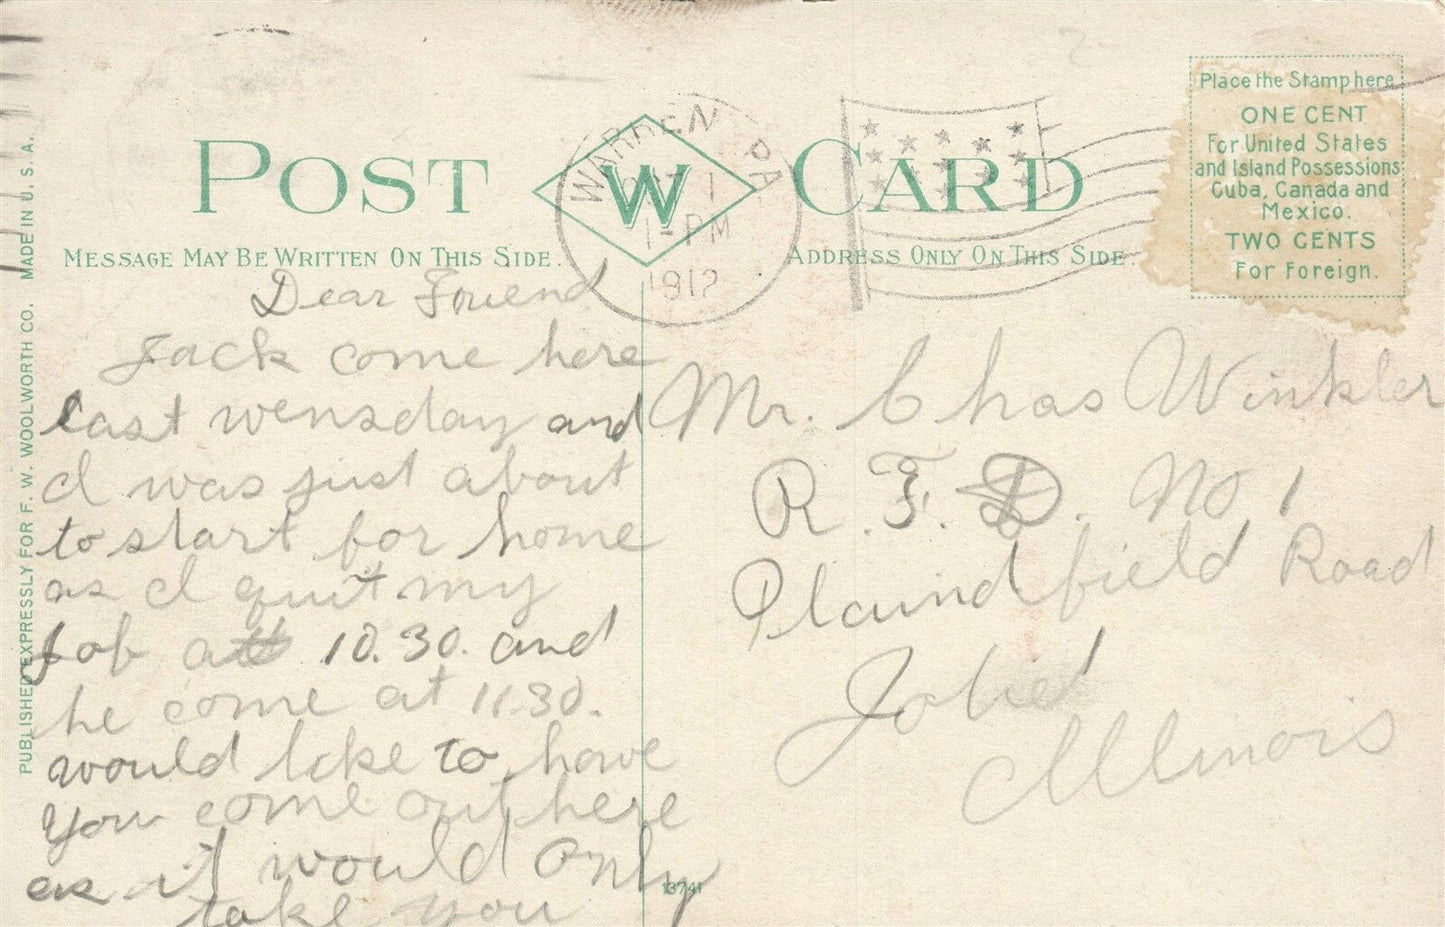 POST CARD
W
WARREN, PA
OCT 1
1-PM
1912
Place the Stamp here
ONE CENT
For United States
and Island Possessions
Cuba, Canada and
Mexico.
TWO CENTS
For Foreign.
MESSAGE MAY BE WRITTEN ON THIS SIDE.
ADDRESS ONLY ON THIS SIDE.
PUBLISHED EXPRESSLY FOR F. W. WOOLWORTH CO. MADE IN U. S. A.
Dear Friend
Jack come here
last wensday and
I was just about
to start for home
as I quit my
job at 10.30. and
he come at 11.30.
would like to have
you come out here
as it would only
take you
Mr. Chas Winkler
R. F. D. No 1
Plaindfield Road
Joliet
Illinois
13741